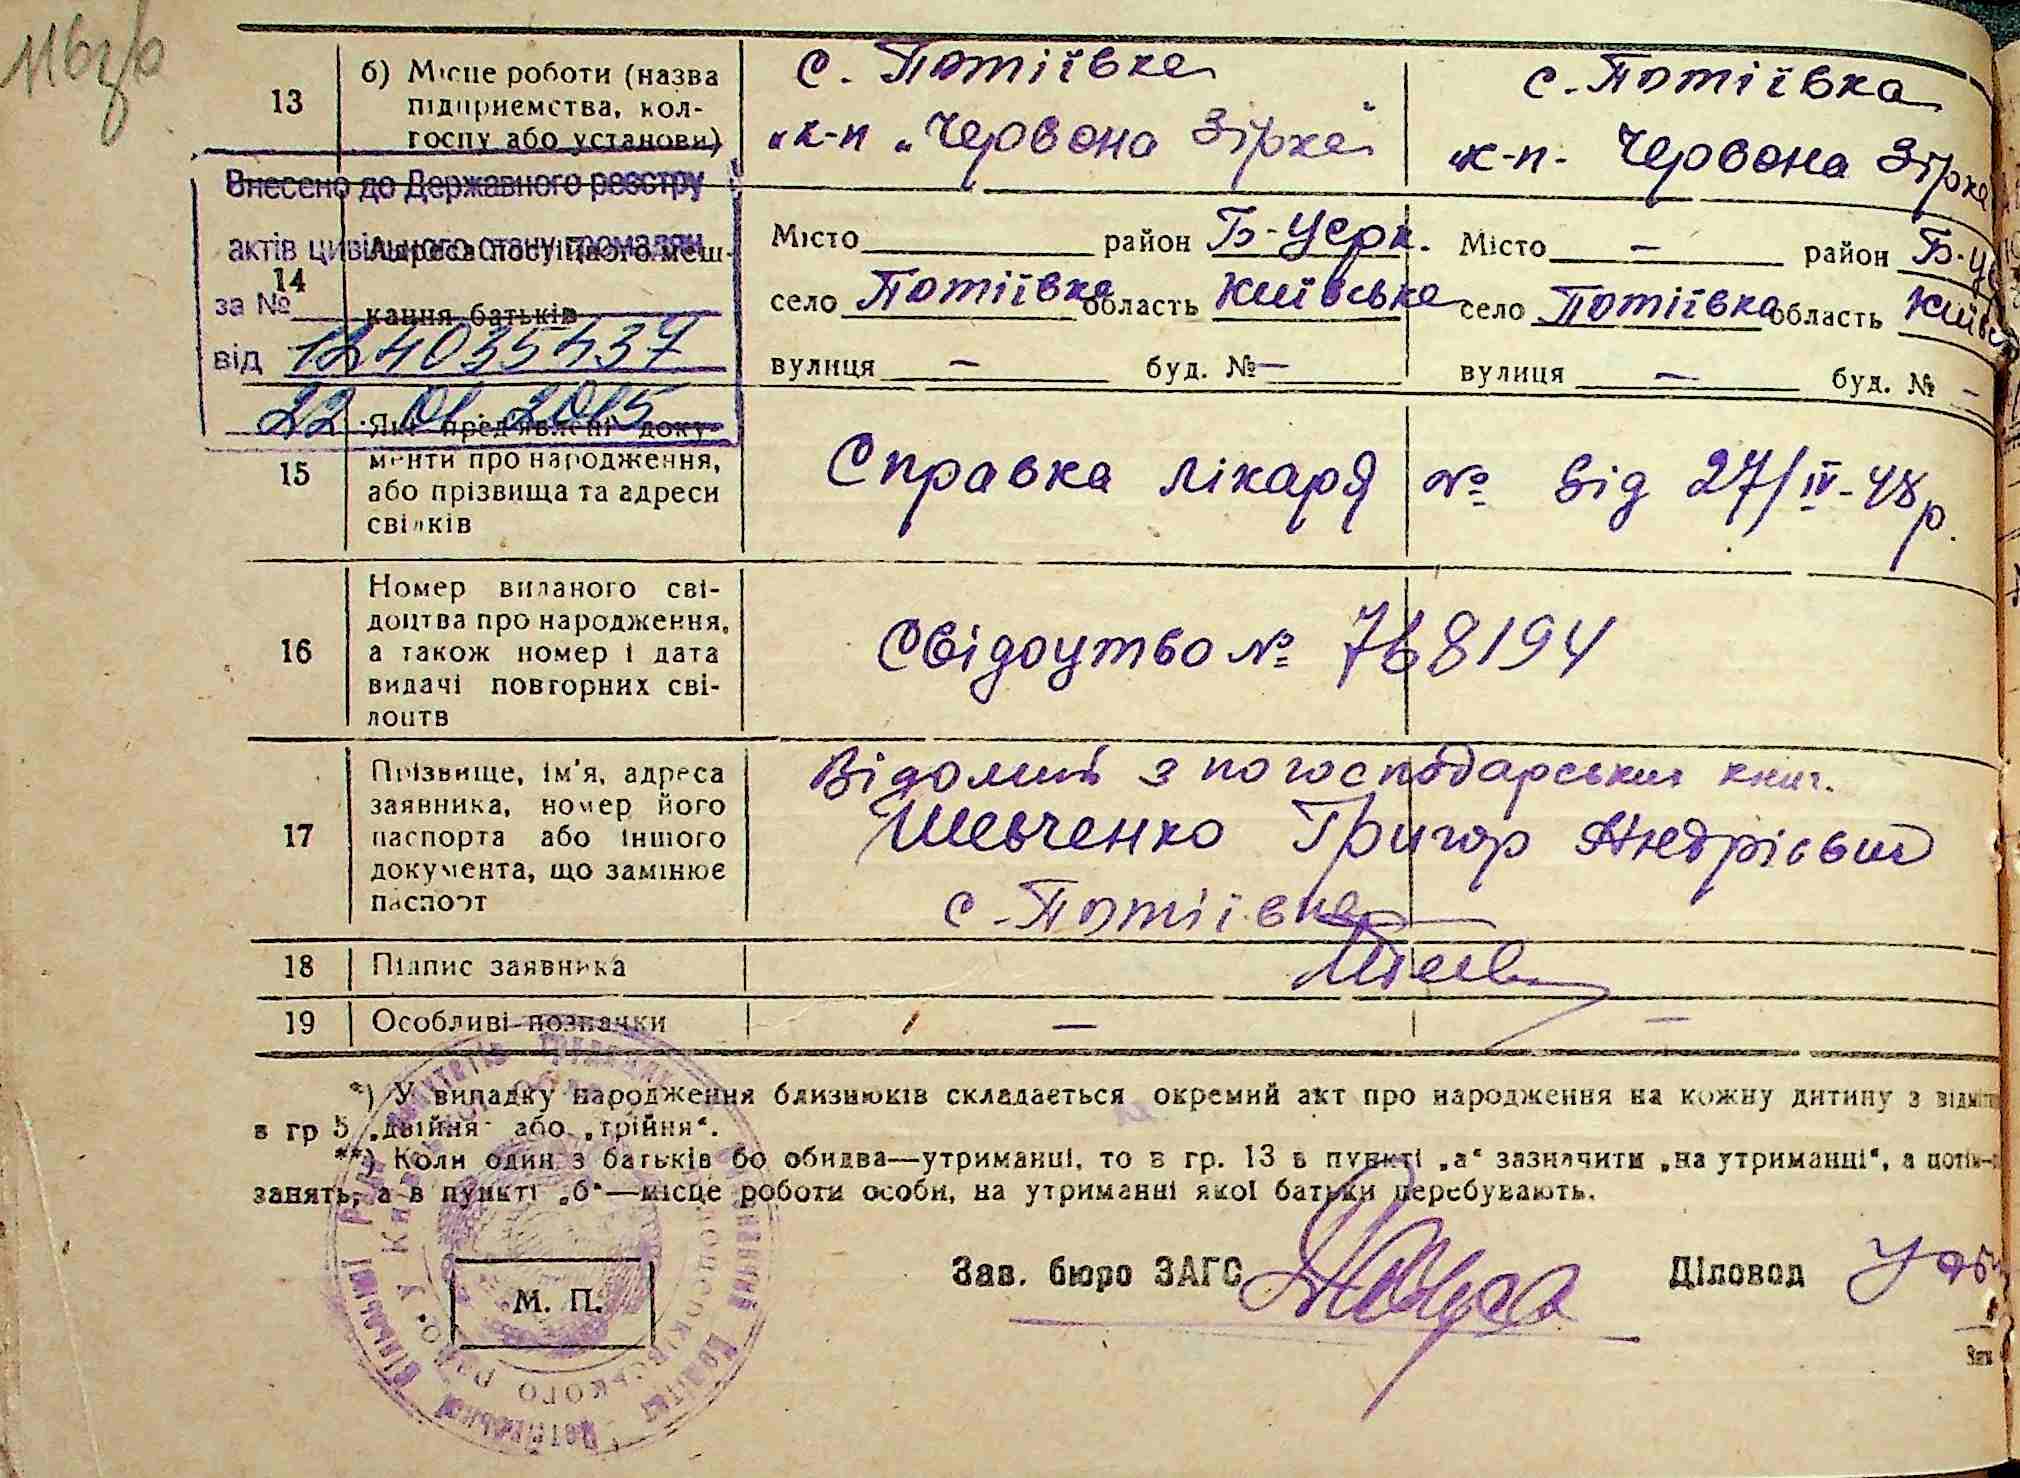 13
б) Місце роботи (назва
підприємства, кол-
госпу або установи)
с. Потіївка
к-п „Червона Зірка"
с. Потіївка
к-п- Червона Зірка
Внесено до Державного реєстру
актів цивільного стану громадян
за №
від 124035437
22. 01 2015
14
Адреса постійного меш-
кання батьків
Місто район Б-Церк.
село Потіївка область Київська
вулиця — буд. № —
Місто — район Б-Це
село Потіївка область Київсь
вулиця — буд. № —
15
Які пред'явлені доку-
менти про народження,
або прізвища та адреси
свідків
Справка лікаря № від 27/IV-48р.
16
Номер виданого сві-
доцтва про народження,
а також номер і дата
видачі повторних сві-
доцтв
Свідоцтво № 768194
17
Прізвище, ім'я, адреса
заявника, номер його
паспорта або іншого
документа, що замінює
паспорт
Відомий з погосподарських книг.
Шевченко Григор Андрієвич
с-Потіївка
18 Підпис заявника
19 Особливі позначки — —
*) У випадку народження близнюків складається окремий акт про народження на кожну дитину з відміт
в гр 5 „двійня" або „трійня".
**) Коли один з батьків бо обидва—утриманці, то в гр. 13 в пункті „а" зазначити „на утриманні", а потім—
занять, а в пункті „б"—місце роботи особи, на утриманні якої батьки перебувають.
Зав. бюро ЗАГС
Діловод
М. П.